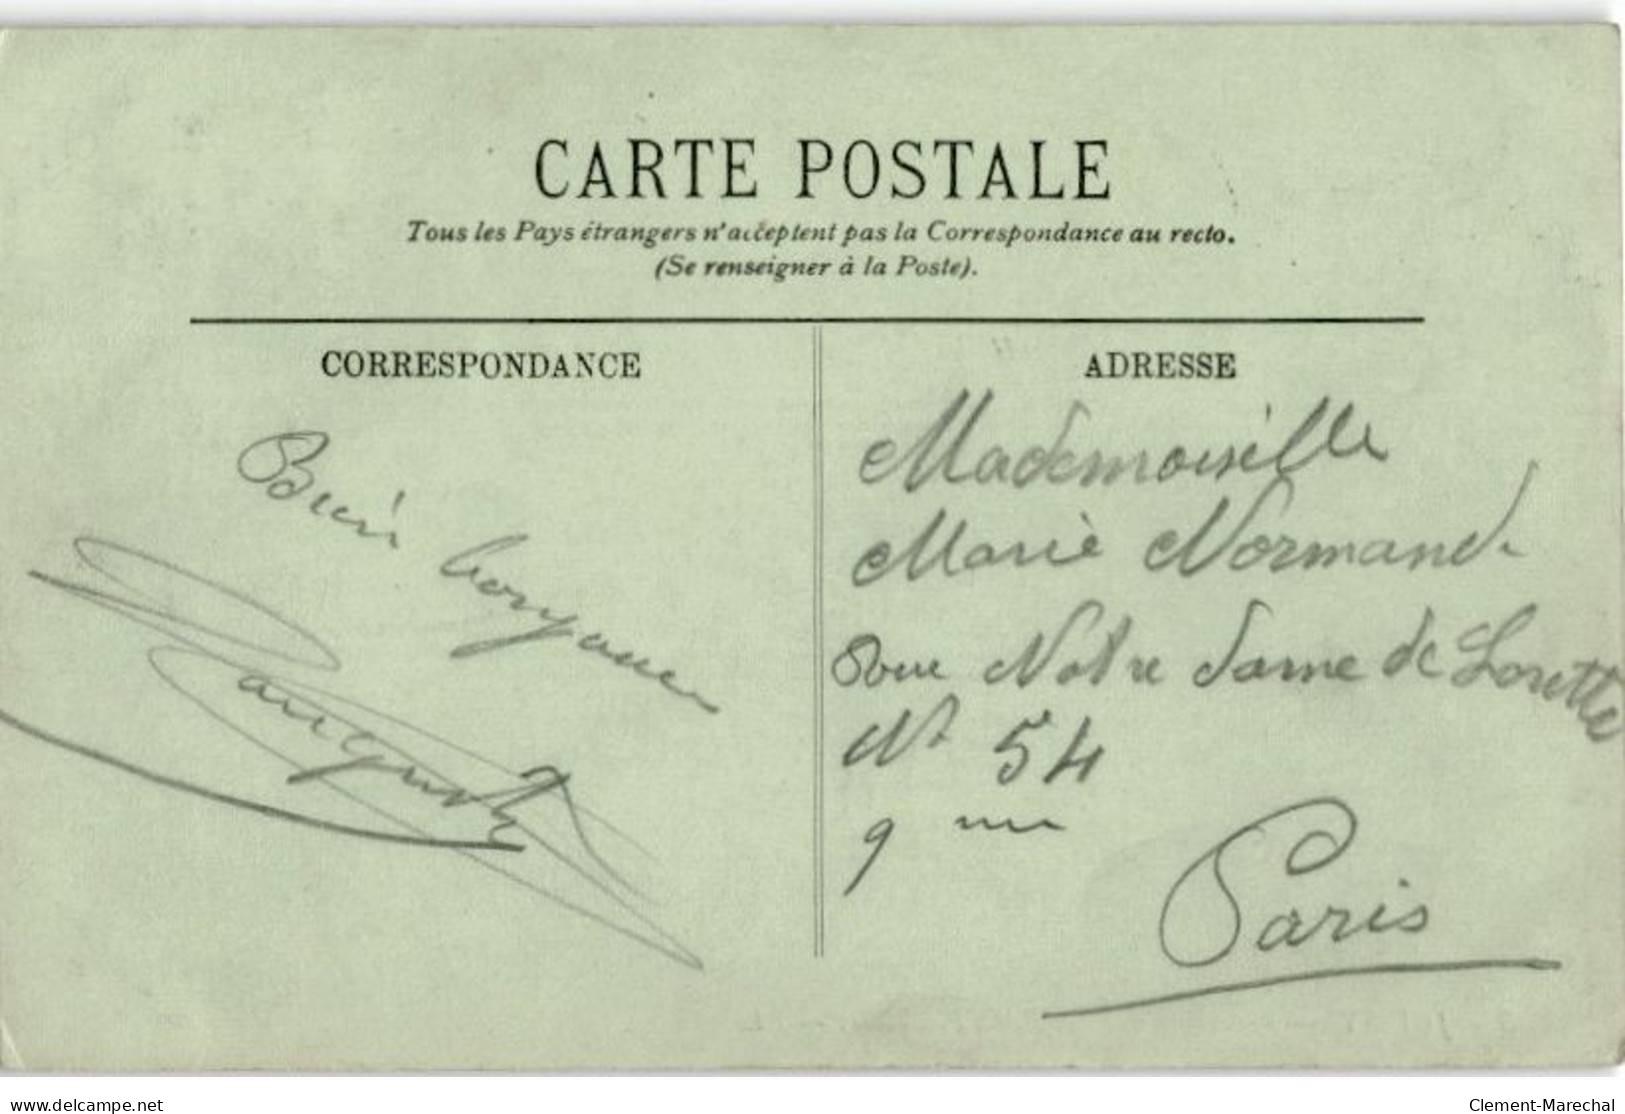 CARTE POSTALE
Tous les Pays étrangers n'acceptent pas la Correspondance au recto.
(Se renseigner à la Poste).
CORRESPONDANCE
Bien
ADRESSE
Mademoiselle
Marie Normand
Notre Dame de Lorette
N° 54
9
Paris
delcampe.net
Clement-Marechal